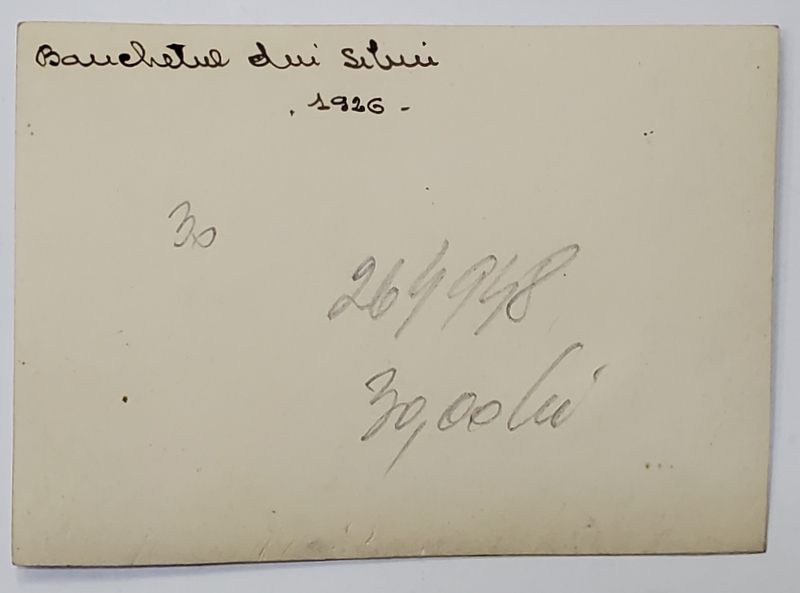 Banchetul dlui
1926 -
30
264948
30,00 lei